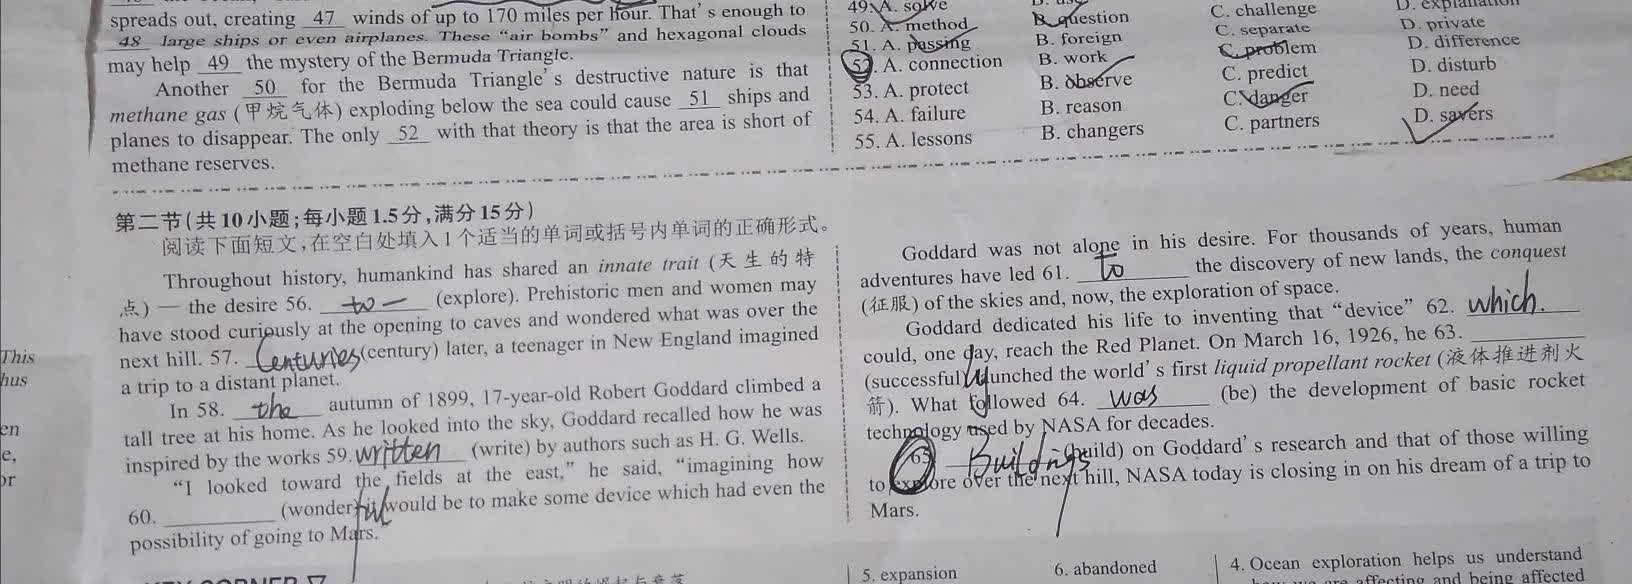 spreads out, creating 47 winds of up to 170 miles per hour. That's enough to
48 large ships or even airplanes. These “air bombs” and hexagonal clouds
may help 49 the mystery of the Bermuda Triangle.
Another 50 for the Bermuda Triangle's destructive nature is that
methane gas (甲烷气体) exploding below the sea could cause 51 ships and
planes to disappear. The only 52 with that theory is that the area is short of
methane reserves.
49. A. solve
50. A. method B. question C. challenge D. explanation
51. A. passing B. foreign C. separate D. private
52. A. connection B. work C. problem D. difference
53. A. protect B. observe C. predict D. disturb
54. A. failure B. reason C. danger D. need
55. A. lessons B. changers C. partners D. savers
第二节(共10小题;每小题1.5分,满分15分)
阅读下面短文,在空白处填入1个适当的单词或括号内单词的正确形式。
Throughout history, humankind has shared an innate trait (天生的特
点) — the desire 56. to — (explore). Prehistoric men and women may
have stood curiously at the opening to caves and wondered what was over the
next hill. 57. Centuries (century) later, a teenager in New England imagined
a trip to a distant planet.
In 58. the autumn of 1899, 17-year-old Robert Goddard climbed a
tall tree at his home. As he looked into the sky, Goddard recalled how he was
inspired by the works 59. written (write) by authors such as H. G. Wells.
“I looked toward the fields at the east,” he said, “imagining how
60. (wonder) ful it would be to make some device which had even the
possibility of going to Mars.”
Goddard was not alone in his desire. For thousands of years, human
adventures have led 61. to the discovery of new lands, the conquest
(征服) of the skies and, now, the exploration of space.
Goddard dedicated his life to inventing that “device” 62. which.
could, one day, reach the Red Planet. On March 16, 1926, he 63.
(successful) launched the world's first liquid propellant rocket (液体推进剂火
箭). What followed 64. was (be) the development of basic rocket
technology used by NASA for decades.
65. Buildings (build) on Goddard's research and that of those willing
to explore over the next hill, NASA today is closing in on his dream of a trip to
Mars.
This
hus
en
e,
or
5. expansion 6. abandoned
4. Ocean exploration helps us understand
affecting and being affected